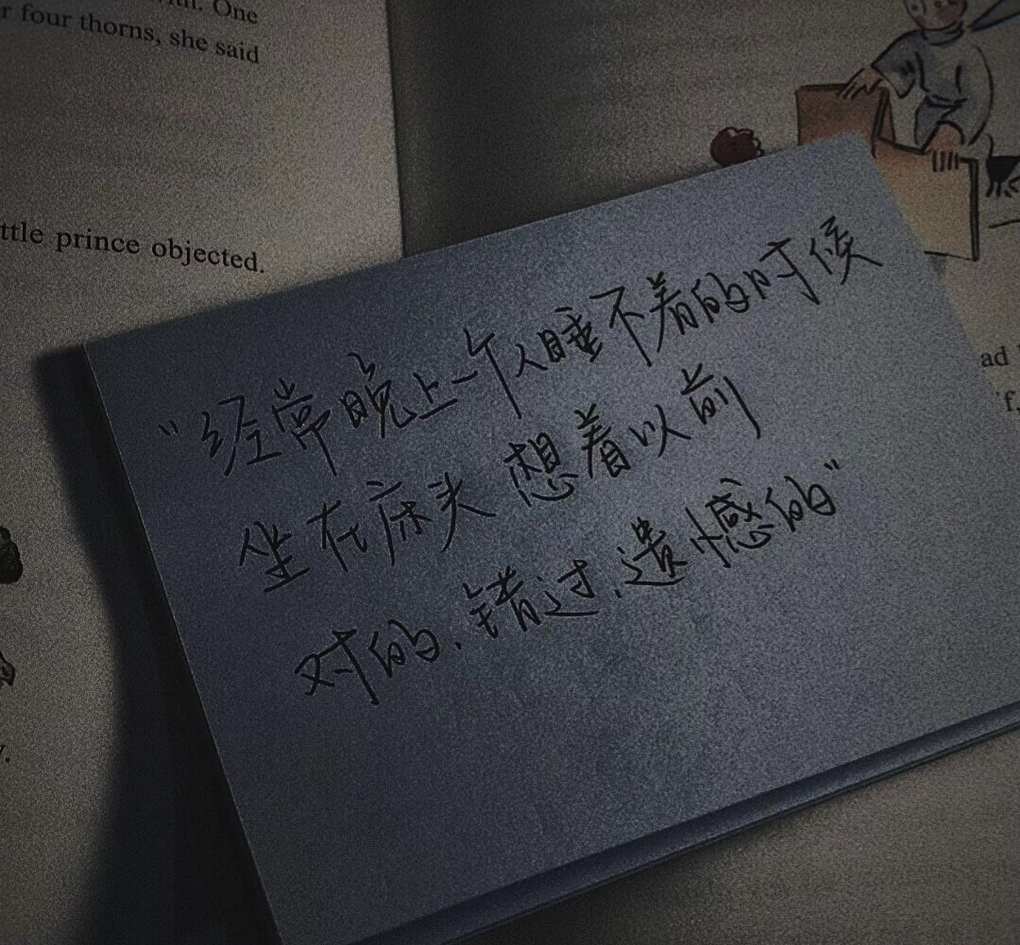 One
r four thorns, she said
ttle prince objected.
"经常晚上一个人睡不着的时候
坐在床头 想着以前
对的、错过、遗憾的"
ad
f,
y.